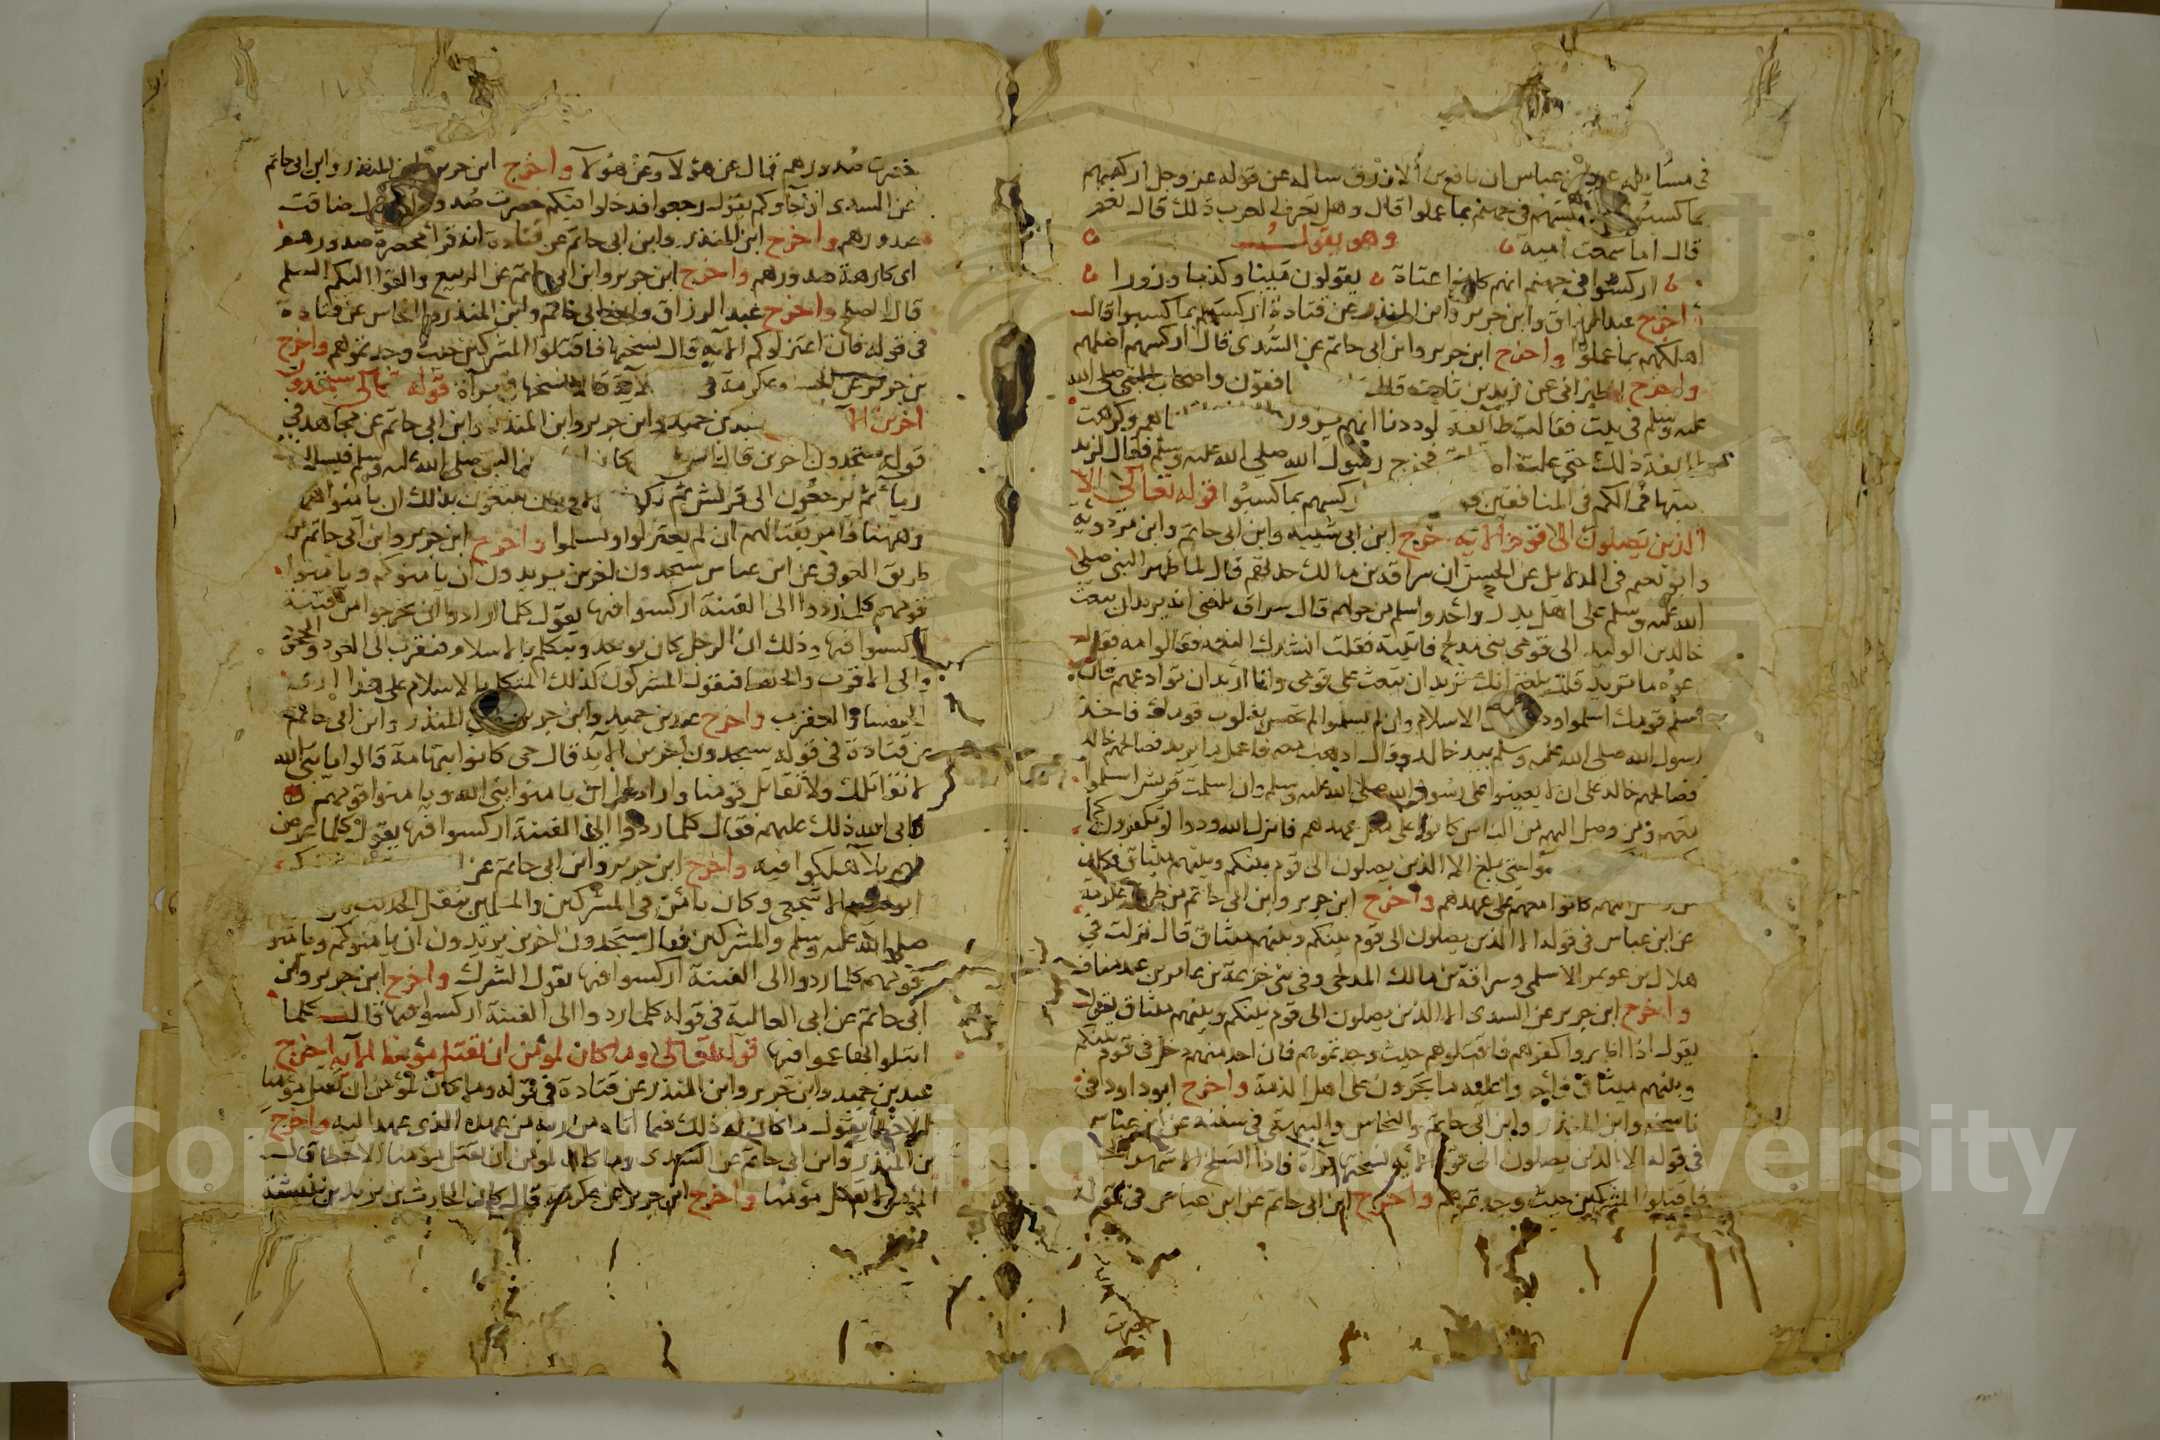 في مسائله عن ابن عباس ان نافع بن الازرق ساله عن قوله عز وجل اركسهم
بما كسبوا في جهنم بما عملوا قال وهل تعرف العرب ذلك قال نعم
قال اما سمعت امية وهو يقول
اركسوا في جهنم انهم كانوا عتاة يقولون مينا وكذبا وزورا
اخرج عبد الرزاق وابن جرير وابن المنذر عن قتادة اركسهم بما كسبوا قال
اهلكهم بما عملوا واخرج ابن جرير وابن ابي حاتم عن السدي قال اركسهم اضلهم
واخرج الطبراني عن زيد بن ثابت قال
عليه وسلم في بيت فقالت طائفة لوددنا انهم وكرهت
ذلك حتى علت فخرج رسول الله صلى الله عليه وسلم فقال لزيد
فما لكم في المنافقين اركسهم بما كسبوا قوله تعالى الا
الذين يصلون الى قوم الاية اخرج ابن ابي شيبه وابن ابي حاتم وابن مردويه
وابو نعيم في الدلايل عن الحسن ان سراقة بن مالك حدثهم قال لما ظهر النبي صلى
الله عليه وسلم على اهل بدر واحد واسلم من حولهم قال سراقة بلغني انه يريد ان يبعث
خالد بن الوليد الى قومي بني مدلج فاتيته فقلت انشدك النعمة فقالوا مه فقال
دعوه ما تريد قلت بلغني انك تريد ان تبعث على قومي وانا اريد ان توادعهم فان
اسلم قومك اسلموا الاسلام وان لم يسلموا لم لقلوب قومك فاخذ
رسول الله صلى الله عليه وسلم بيد خالد وقال اذهب معه فافعل ما يريد فصالحهم خالد
فصالحهم خالد على ان لا يعينوا على رسول الله صلى الله عليه وسلم وان اسلمت قريش اسلموا
معهم ومن وصل اليهم من الناس كانوا على مثل عهدهم فانزل الله ودوا لو تكفرون كما
حتى بلغ الا الذين يصلون الى قوم بينكم وبينهم ميثاق فكان
كانوا معهم على عهدهم واخرج ابن جرير وابن ابي حاتم من طريق عكرمة
عن ابن عباس في قوله الا الذين يصلون الى قوم بينكم وبينهم ميثاق قال نزلت في
هلال بن عويمر الاسلمي وسراقة بن مالك المدلجي وفي بني خزيمة بن عامر بن عبد مناف
واخرج ابن جرير عن السدي الا الذين يصلون الى قوم بينكم وبينهم ميثاق يقول
يقول اذا اظهروا كفرهم فاقتلوهم حيث وجدتموهم فان احد منهم دخل في قوم بينكم
وبينهم ميثاق فاجروا عليه ما تجرون على اهل الذمة واخرج ابو داود في
ناسخه وابن المنذر وابن ابي حاتم والنحاس والبيهقي في سننه عن ابن عباس
في قوله الا الذين يصلون الى قوم الاية نسختها براة فاذا انسلخ الاشهر
فاقتلوا المشركين حيث وجدتموهم واخرج ابن ابي حاتم عن ابن عباس في قوله
حصرت
حصرت صدورهم قال عن هؤلاء وعن هؤلاء واخرج ابن جرير وابن المنذر وابن ابي حاتم
عن السدي او جاوكم يقول رجعوا فدخلوا فيكم حصرت صدورهم ضاقت
صدورهم واخرج ابن المنذر وابن ابي حاتم عن قتادة انه قرا حصرة صدورهم
اي كارهة صدورهم واخرج ابن جرير وابن ابي حاتم عن الربيع والقوا اليكم السلم
قال الصلح واخرج عبد الرزاق وابن ابي حاتم وابن المنذر والنحاس عن قتادة
في قوله فان اعتزلوكم الاية قال نسختها فاقتلوا المشركين حيث وجدتموهم واخرج
بن جرير عن الحسن وعكرمة في الاية قالا نسخها براة قوله تعالى ستجدون
اخرين الا عبد بن حميد وابن جرير وابن المنذر وابن ابي حاتم عن مجاهد في
قوله ستجدون اخرين قال ناس كانوا النبي صلى الله عليه وسلم فيسلمون
رياء ثم يرجعون الى قريش يبتغون بذلك ان يامنوا ههنا
وههنا فامر بقتالهم ان لم يعتزلوا ويسلموا واخرج ابن جرير وابن ابي حاتم من
طريق العوفي عن ابن عباس ستجدون اخرين يريدون ان يامنوكم ويامنوا
قومهم كلما ردوا الى الفتنة اركسوا فيها يقول كلما ارادوا ان يخرجوا من فتنة
اركسوا فيها وذلك ان الرجل كان يوجد ويتكلم بالاسلام فيتقرب الى العود والحجر
والى العقرب والخنفسا فيقول المشركون كذلك المتكلم بالاسلام على هذا ربي
الخنفسا والعقرب واخرج عبد بن حميد وابن جرير وابن المنذر وابن ابي حاتم
عن قتادة في قوله ستجدون اخرين الاية قال حي كانوا بتهامة قالوا يا نبي الله
لا نقاتلك ولا نقاتل قومنا وارادوا ان يامنوا نبي الله ويامنوا قومهم
فابى الله ذلك عليهم فقال كلما ردوا الى الفتنة اركسوا فيها يقول كلما عرض
لهم بلا هلكوا فيه واخرج ابن جرير وابن ابي حاتم عن
الاشجعي وكان يامن في المشركين والمسلمين بنقل الحديث
صلى الله عليه وسلم والمشركين فقال ستجدون اخرين يريدون ان يامنوكم ويامنوا
قومهم كلما ردوا الى الفتنة اركسوا فيها يقول الشرك واخرج ابن جرير وابن
ابي حاتم عن ابي العالية في قوله كلما ردوا الى الفتنة اركسوا فيها قال كلما
ابتلوا بها عموا فيها قوله تعالى وما كان لمومن ان يقتل مومنا الاية اخرج
عبد بن حميد وابن جرير وابن المنذر عن قتادة في قوله وما كان لمومن ان يقتل مومنا
الا خطا يقول ما كان له ذلك فيما اتاه من ربه من عهد الله الذي عهد اليه واخرج
بن المنذر وابن ابي حاتم عن السدي وما كان لمومن ان يقتل مومنا الا خطا قال
المومن لا يقتل مؤمنا واخرج ابن جرير عن عكرمة قال كان الحارث بن يزيد بن نبيشة
Copyright © King Saud University